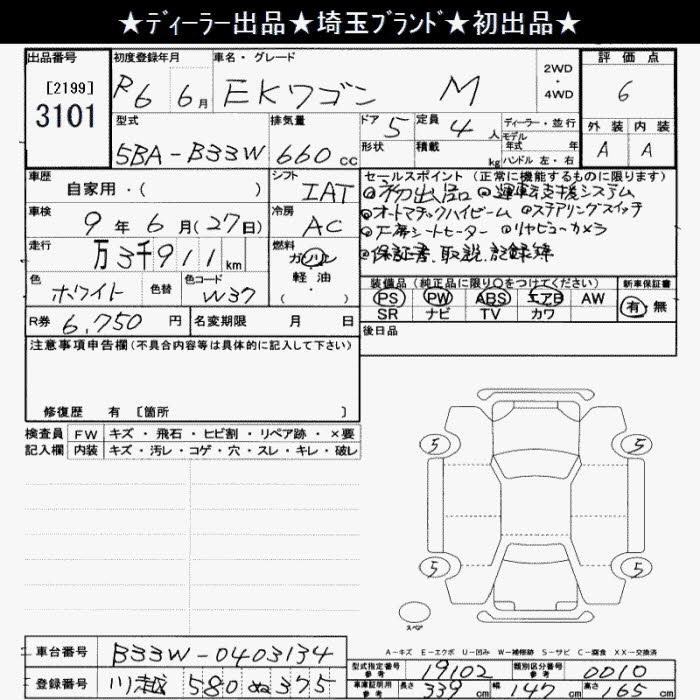 ★ディーラー出品★埼玉ブランド★初出品★
出品番号 初度登録年月 車名・グレード 2WD・4WD 評価点
[2199] R6 6月 EKワゴン M 6
3101
型式 排気量 ドア 5 定員 4人 ディーラー・並行 外装 内装
モデル年式 年
5BA-B33W 660cc 形状 積載 kg ハンドル 左・右 A A
車歴 シフト セールスポイント(正常に機能するものに限ります)
自家用・( ) IAT ◎初出品 ◎運転支援システム
車検 冷房 ◎オートマチックハイビーム ◎ステアリングスイッチ
9年6月(27日) AC ◎左席シートヒーター ◎リヤビューカメラ
走行 万3千911km 燃料 ガソリン ◎保証書、取説、記録簿
軽油
( )
色 色替 色コード 装備品(純正品に限り○をつけてください) 新車保証書
ホワイト W37 PS PW ABS エアB AW 有・無
SR ナビ TV カワ
R券 6,750円 名変期限 月 日 後日品
注意事項申告欄(不具合内容等は具体的に記入して下さい)
修復歴 有 〔箇所 〕
検査員 FW キズ・飛石・ヒビ割・リペア跡・×要
記入欄 内装 キズ・汚レ・コゲ・穴・スレ・キレ・破レ
5 5
5 5
スペア
A-キズ E-エクボ U-凹み W-補修跡 S-サビ C-腐食 XX-交換済
車台番号 B33W-0403134 型式指定番号 参考 19102 類別区分番号 参考 0010
登録番号 川越 580 ぬ 375 車庫証明用 参考 長さ 339cm 幅 147cm 高さ 165cm